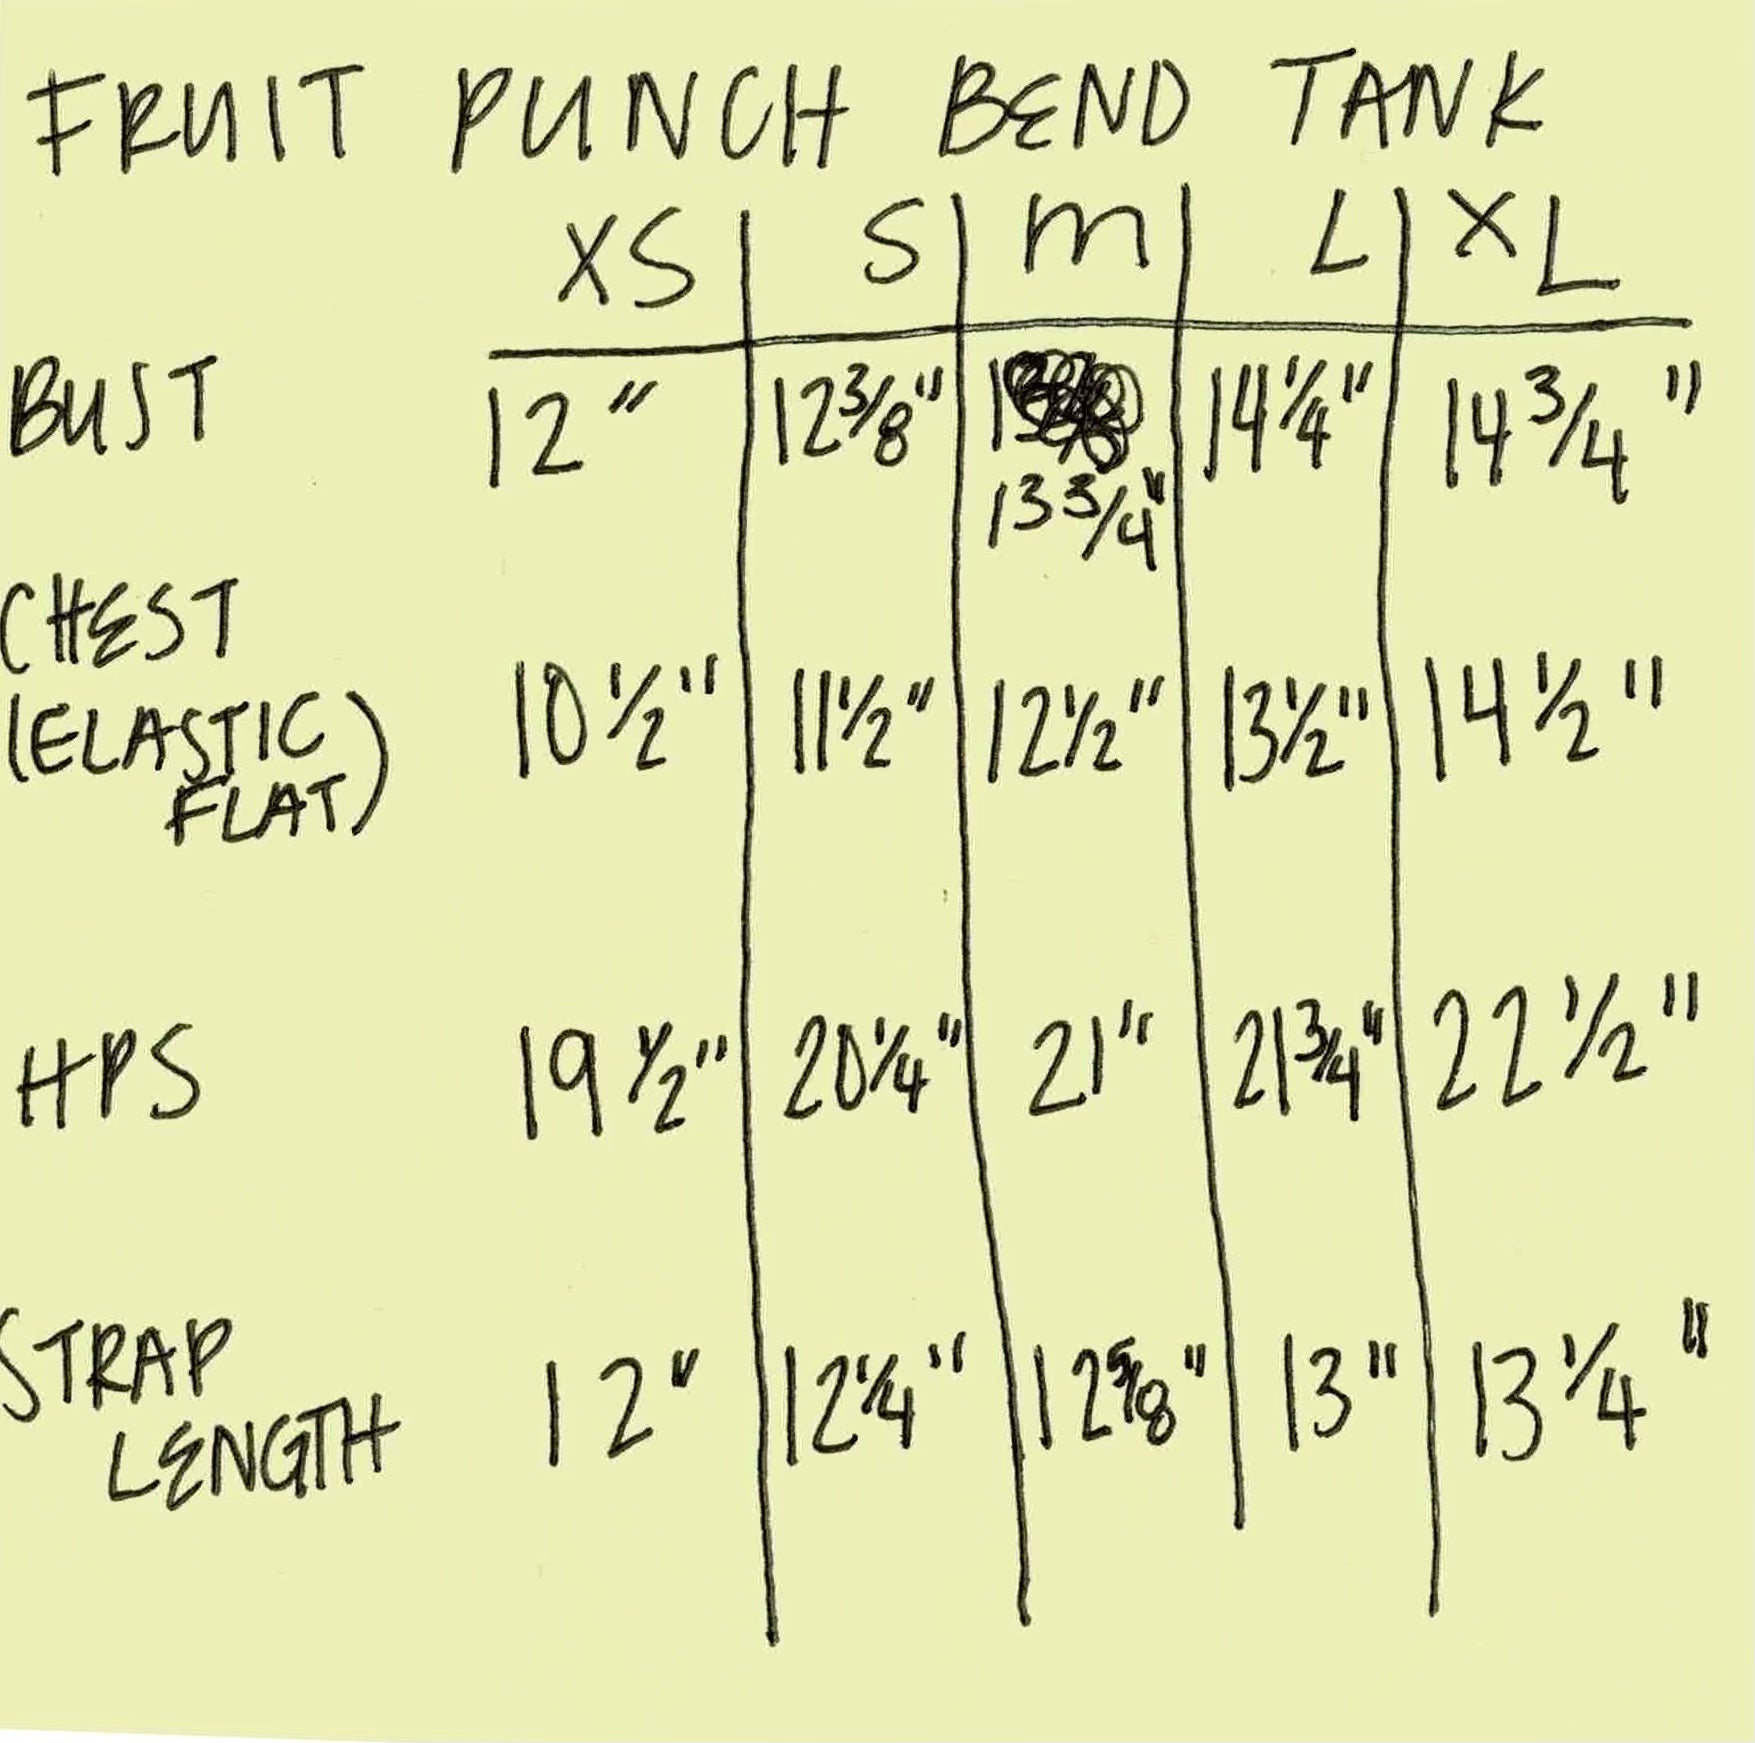 FRUIT PUNCH BEND TANK
XS S M L XL
BUST 12" 12 3/8" 14 1/4" 14 3/4"
13 3/4"
CHEST
(ELASTIC 10 1/2" 11 1/2" 12 1/2" 13 1/2" 14 1/2"
FLAT)
HPS 19 1/2" 20 1/4" 21" 21 3/4" 22 1/2"
STRAP 12" 12 1/4" 12 5/8" 13" 13 1/4"
LENGTH